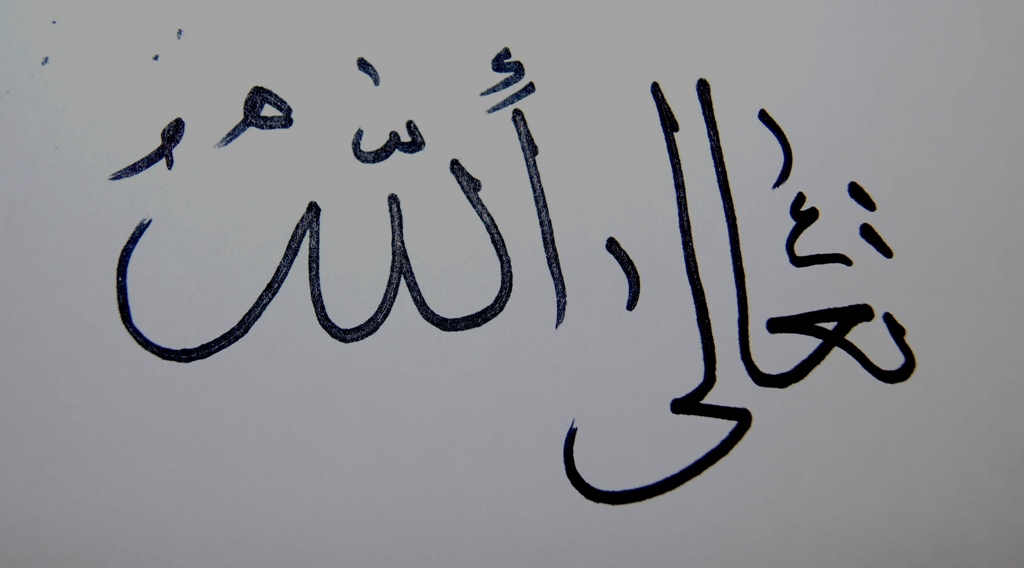 تَعَالَى أَللَّهُ